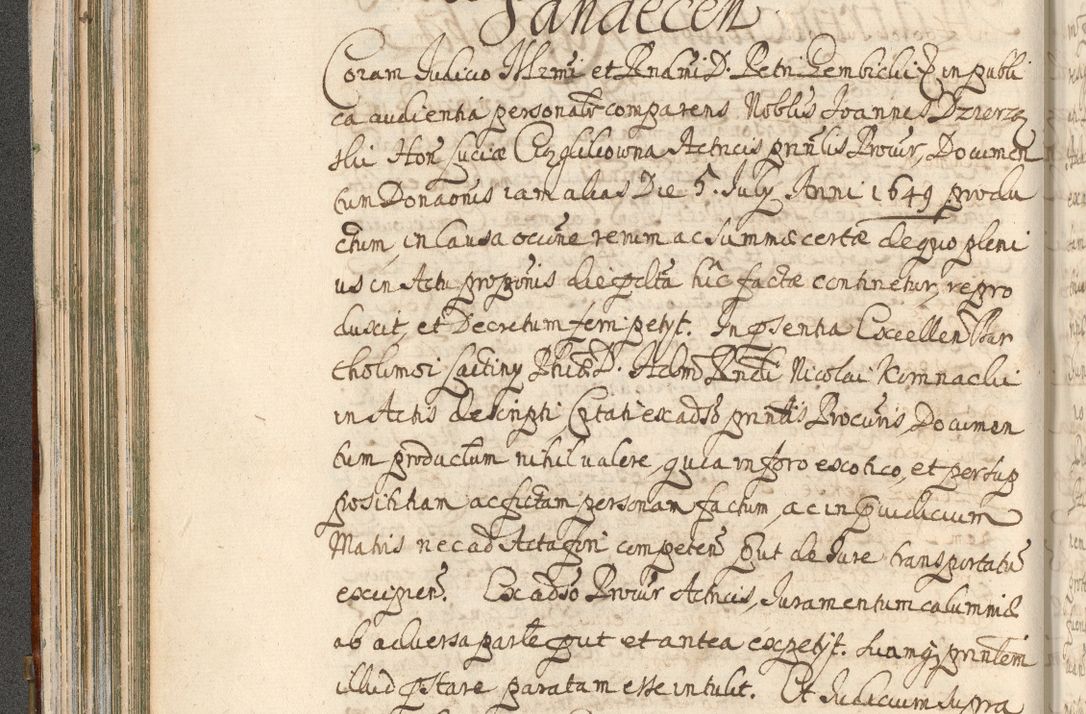 Sandecen
Coram Judicio Illrmi et Rndmi D. Petri Gembiclii E. in publi
ca audientia personalr comparens Noblis Joannes Dzierzz
slii Hon Luciæ Actricis prinlis Procur, Documen
tum Donaonis iam alias Die 5. July Anni 1649 produ
ctum, in causa occne rerum ac summæ certæ de quo pleni
us in Actu proponis die pclta hic factæ continetur, repro
ducit, et Decretum ferri petyt. In psentia Excellen Bar
tholomei Phiæ D. Adm Rndi Nicolai Komnaclii
in Actis descripti Citati ex adso prinlis Procuris, Documen
tum productum nihil valere, quia in foro exotico, et per sup
posititiam ac fictam personam factum, ac in pruiudicium
Matris nec ad Acta fori competen put de Jure transportatu
excipien. Ex adso Procur Actricis, Juramentum calumniæ
ab adversa parte put et antea expetyt. suamq prinlem
illud pstare paratam esse intulit. Et Judicium supra